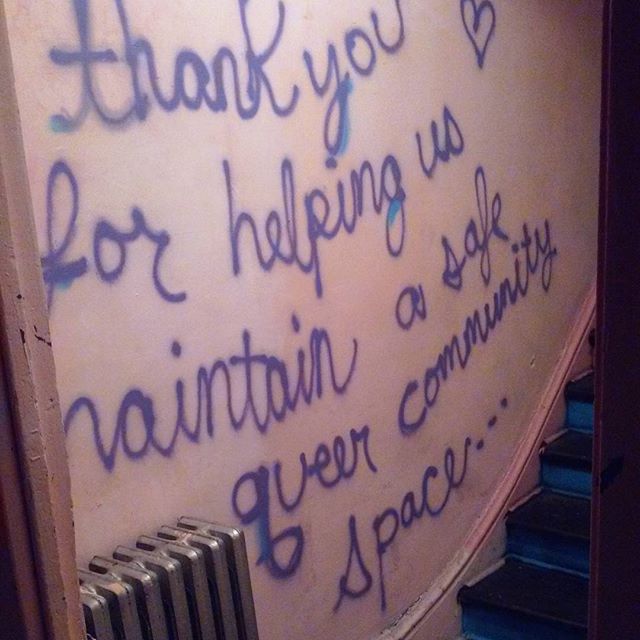 thank you ♡
for helping us
maintain a safe
queer community
space...